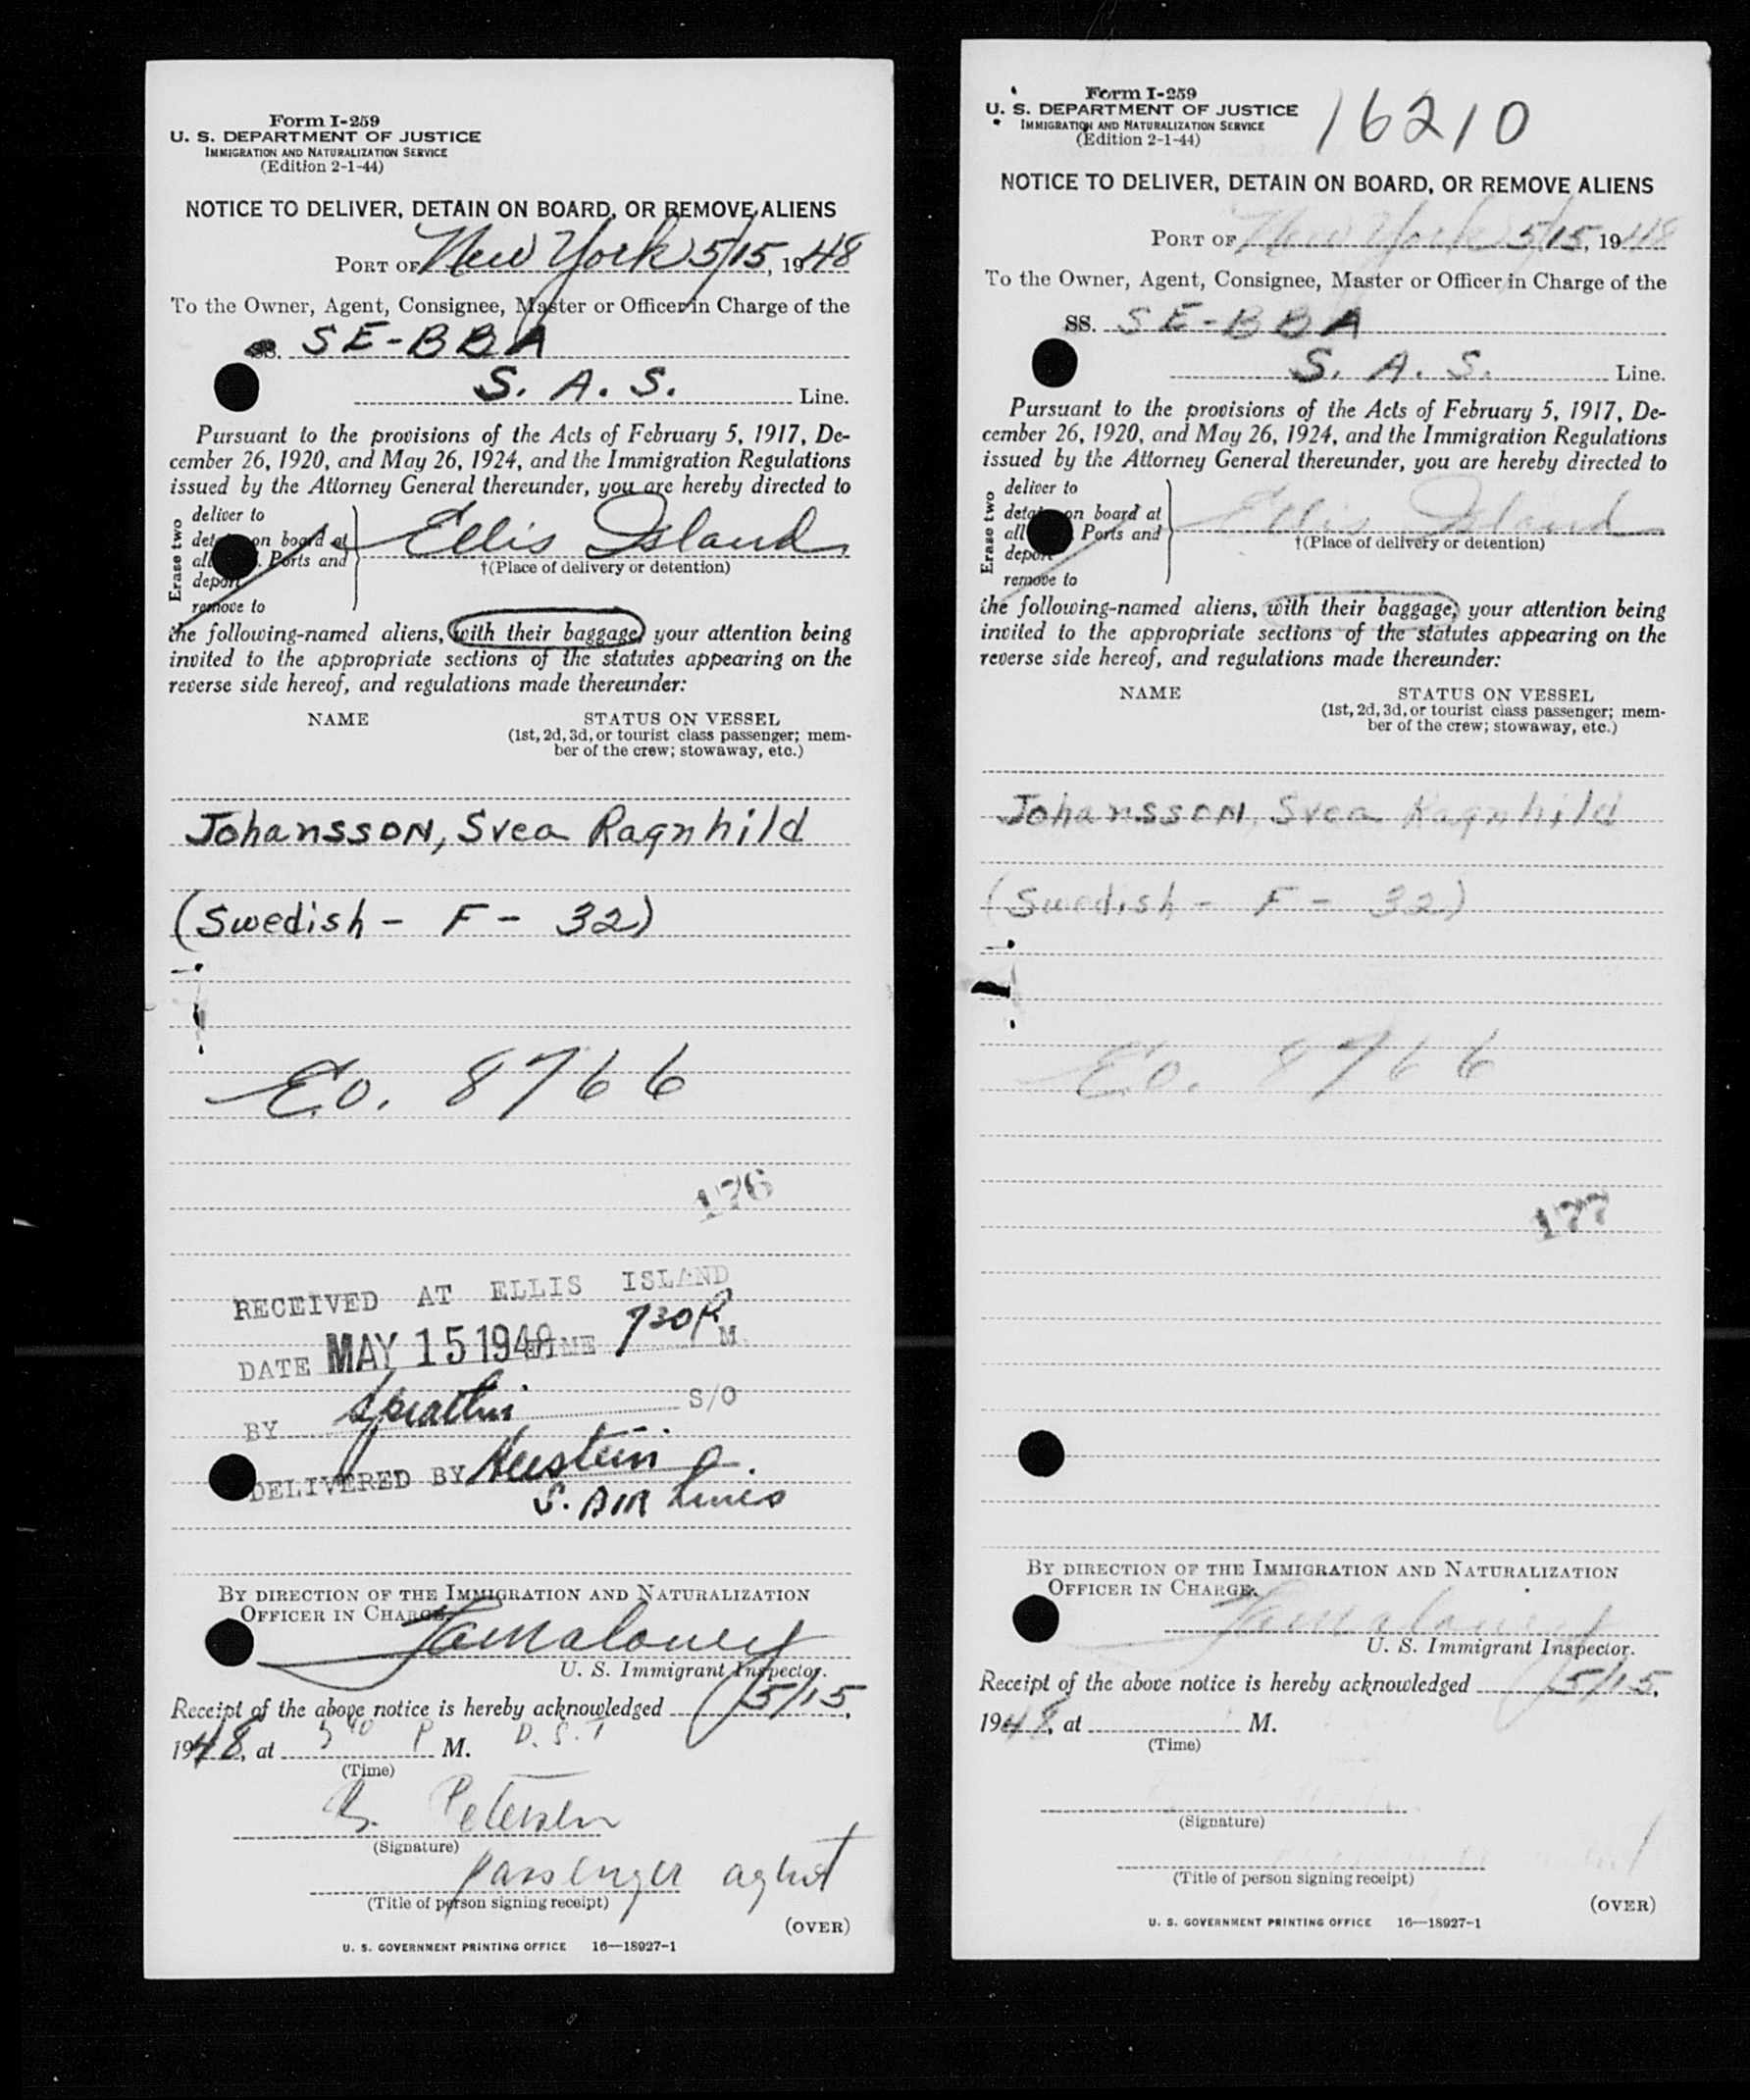 Form I-259
U. S. DEPARTMENT OF JUSTICE
IMMIGRATION AND NATURALIZATION SERVICE
(Edition 2-1-44)
NOTICE TO DELIVER, DETAIN ON BOARD, OR REMOVE ALIENS
PORT OF New York 5/15, 1948
To the Owner, Agent, Consignee, Master or Officer in Charge of the
SS. SE-BBA
S. A. S. Line.
Pursuant to the provisions of the Acts of February 5, 1917, De-
cember 26, 1920, and May 26, 1924, and the Immigration Regulations
issued by the Attorney General thereunder, you are hereby directed to
Erase two
deliver to
on board at
Ports and
remove to
Ellis Island
†(Place of delivery or detention)
the following-named aliens, with their baggage, your attention being
invited to the appropriate sections of the statutes appearing on the
reverse side hereof, and regulations made thereunder:
NAME STATUS ON VESSEL
(1st, 2d, 3d, or tourist class passenger; mem-
ber of the crew; stowaway, etc.)
Johansson, Svea Ragnhild
(Swedish - F - 32)
Eo. 8766
176
RECEIVED AT ELLIS ISLAND
DATE MAY 15 1948 TIME 730 P M.
BY S/O
DELIVERED BY
S. AIR Lines
BY DIRECTION OF THE IMMIGRATION AND NATURALIZATION
OFFICER IN CHARGE.
Maloney
U. S. Immigrant Inspector.
Receipt of the above notice is hereby acknowledged 5/15,
1948, at 5 40 P M. D. S. T
(Time)
B. Petersen
(Signature)
passenger agent
(Title of person signing receipt)
(OVER)
U. S. GOVERNMENT PRINTING OFFICE 16—18927-1
Form I-259
U. S. DEPARTMENT OF JUSTICE
IMMIGRATION AND NATURALIZATION SERVICE
(Edition 2-1-44)
16210
NOTICE TO DELIVER, DETAIN ON BOARD, OR REMOVE ALIENS
PORT OF New York 5/15, 1948
To the Owner, Agent, Consignee, Master or Officer in Charge of the
SS. SE-BBA
S. A. S. Line.
Pursuant to the provisions of the Acts of February 5, 1917, De-
cember 26, 1920, and May 26, 1924, and the Immigration Regulations
issued by the Attorney General thereunder, you are hereby directed to
Erase two
deliver to
on board at
Ports and
remove to
Ellis Island
†(Place of delivery or detention)
the following-named aliens, with their baggage, your attention being
invited to the appropriate sections of the statutes appearing on the
reverse side hereof, and regulations made thereunder:
NAME STATUS ON VESSEL
(1st, 2d, 3d, or tourist class passenger; mem-
ber of the crew; stowaway, etc.)
Johansson, Svea Ragnhild
(Swedish - F - 32)
Eo. 8766
177
BY DIRECTION OF THE IMMIGRATION AND NATURALIZATION
OFFICER IN CHARGE.
Maloney
U. S. Immigrant Inspector.
Receipt of the above notice is hereby acknowledged 5/15,
1948, at M.
(Time)
(Signature)
(Title of person signing receipt)
(OVER)
U. S. GOVERNMENT PRINTING OFFICE 16—18927-1